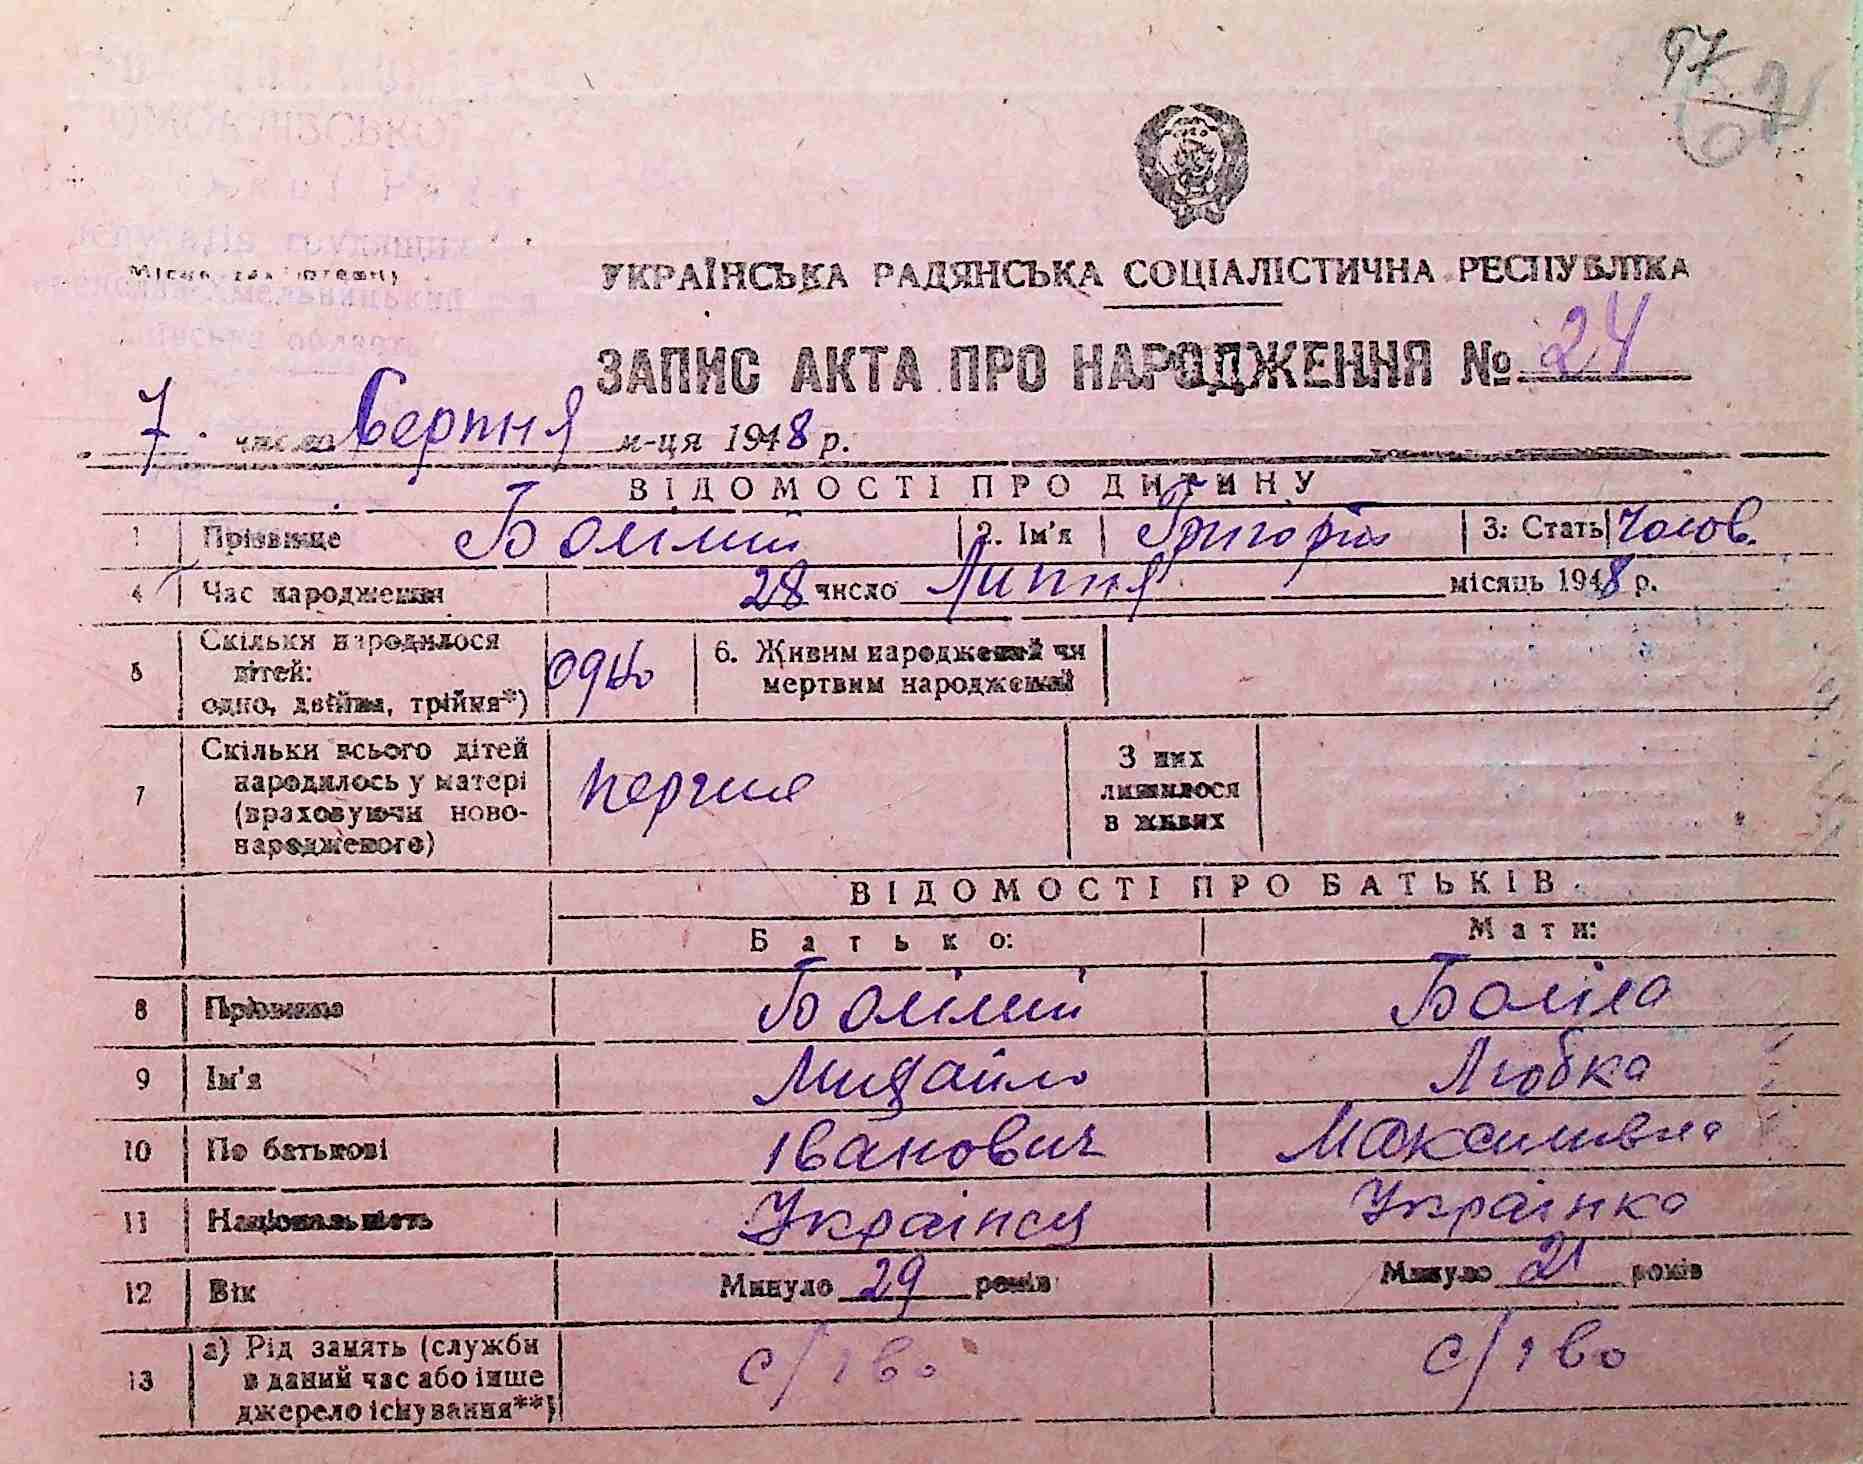 97
УКРАЇНСЬКА РАДЯНСЬКА СОЦІАЛІСТИЧНА РЕСПУБЛІКА
ЗАПИС АКТА ПРО НАРОДЖЕННЯ № 24
7 число Серпня м-ця 1948 р.
ВІДОМОСТІ ПРО ДИТИНУ
1 Прізвище 2. Ім'я Григорій 3. Стать Чолов.
4 Час народження 28 число Липня місяць 1948 р.
Скільки народилося
5 дітей: одно 6. Живим народжений чи
одно, двійня, трійня*) мертвим народжений
Скільки всього дітей З них
7 народилось у матері перше лишилося
(враховуючи ново- в живих
народженого)
ВІДОМОСТІ ПРО БАТЬКІВ
Батько: Мати:
8 Прізвище
9 Ім'я Михайло Любка
10 По батькові Іванович Максимівна
11 Національність Українец Українка
12 Вік Минуло 29 років Минуло 21 років
а) Рід занять (служби
13 в даний час або інше с/г-во с/г-во
джерело існування**)